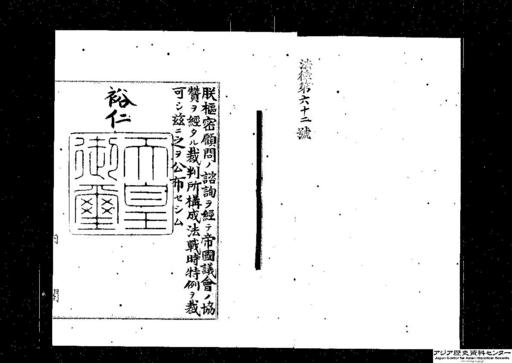 法律第六十二號
朕樞密顧問ノ諮詢ヲ經テ帝國議會ノ協
贊ヲ經タル裁判所構成法戰時特例ヲ裁
可シ茲ニ之ヲ公布セシム
裕仁
天皇
御璽
アジア歴史資料センター
Japan Center for Asian Historical Records